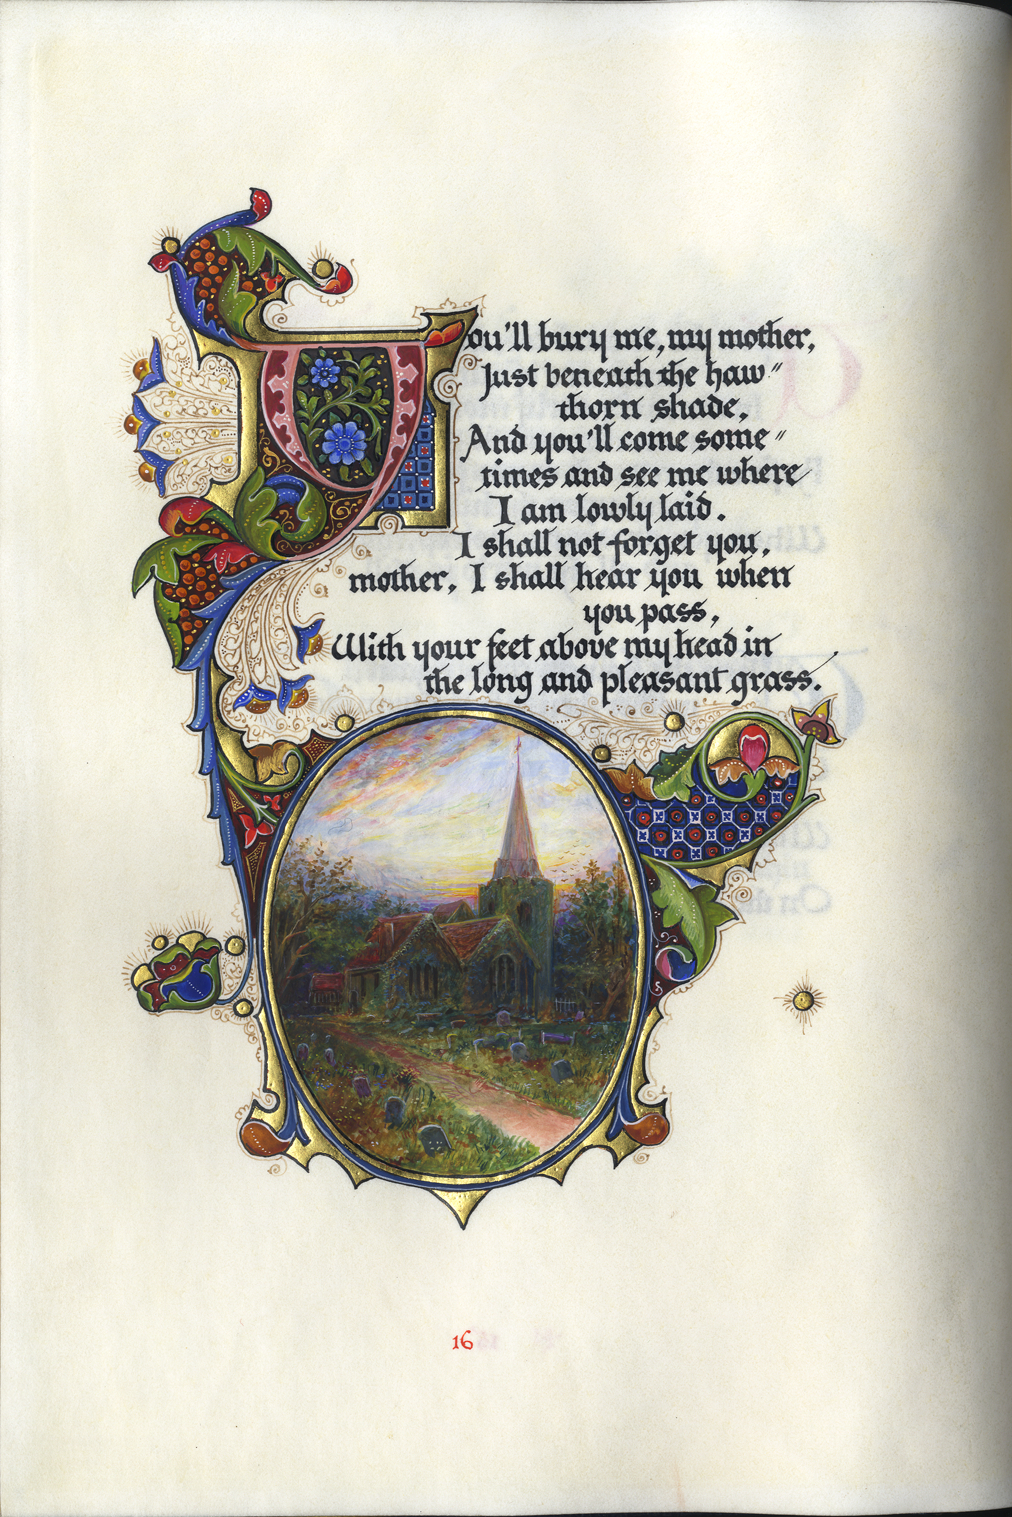 You'll bury me, my mother,
Just beneath the haw〃
thorn shade,
And you'll come some〃
times and see me where
I am lowly laid.
I shall not forget you,
mother, I shall hear you when
you pass,
With your feet above my head in
the long and pleasant grass.
16